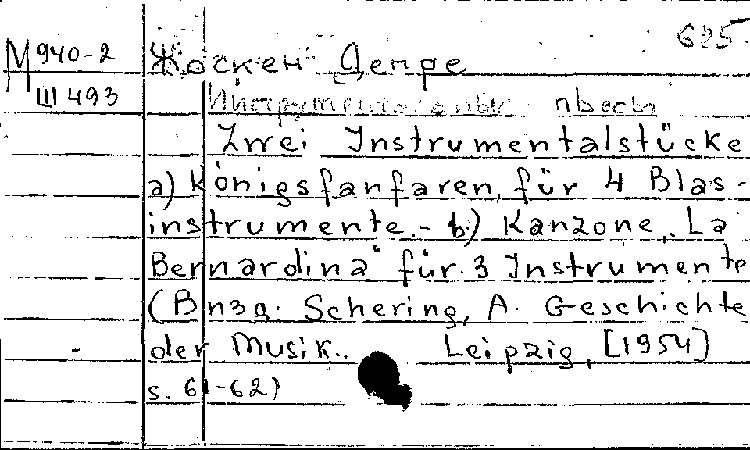 625
М 940-2 Жоскен Депре
Ш 493
Инструментальные пьесы
Zwei Instrumentalstücke
a) Königsfanfaren für 4 Blas-
instrumente.- b) Kanzone „La
Bernardina" für 3 Instrumente
(В изд: Schering, A. Geschichte
der Musik.. Leipzig, [1954]
s. 61-62)